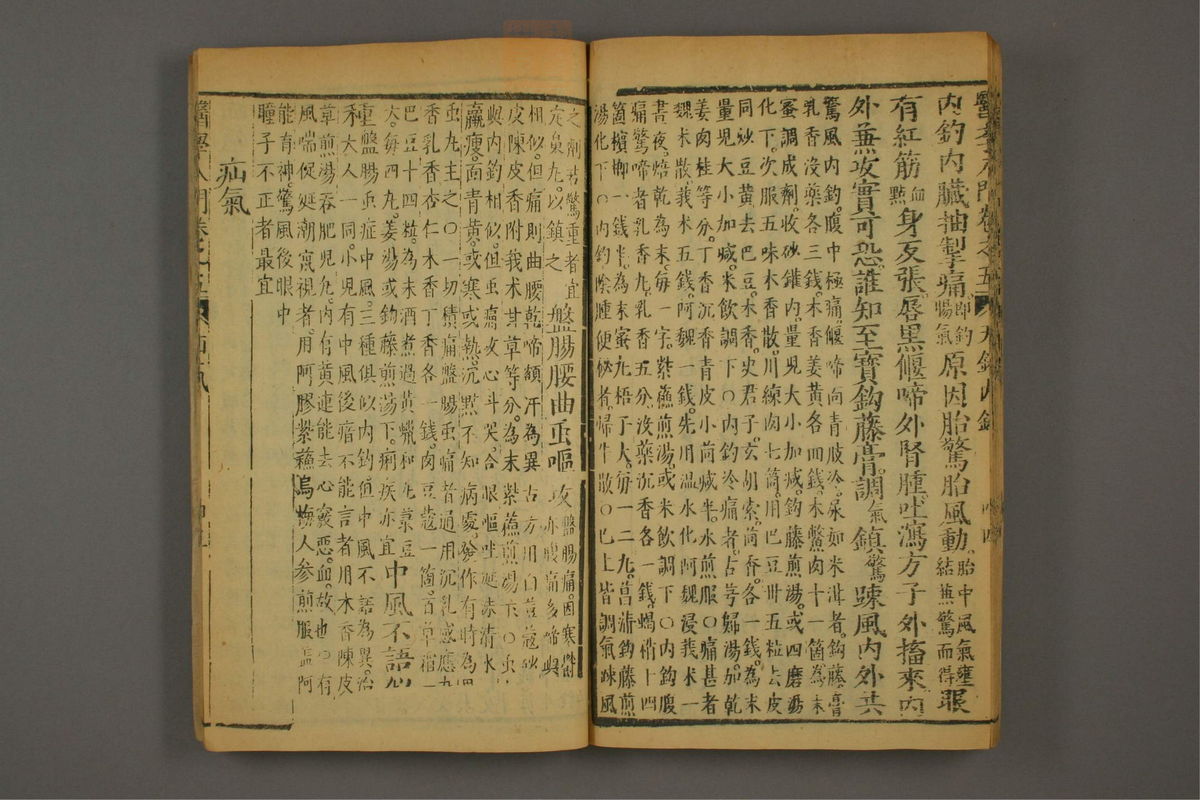 醫學入門卷之五 天釣內釣
內釣內臟抽掣痛即釣腸氣原因胎驚胎風動胎中風氣壅結兼驚而得眼
有紅筋血點身反張唇黑傴啼外腎腫吐瀉方子外搐來內
外兼攻實可恐誰知至寶鈎藤膏調氣鎮驚踈風內外共
驚風內釣腹中極痛傴啼向青肢冷尿如米泔者鈎藤膏
乳香沒藥各三錢木香姜黃各四錢木鱉肉十一箇為末
蜜調成劑收砂鑵內量見大小加減鈎藤煎湯或四磨湯
化下次服五味木香散川練肉七筒用巴豆卅五粒去皮
同炒豆黃去巴豆木香史君子玄胡索茴香各一錢為末
量見大小加減米飲調下〇內釣冷痛者古芎歸湯加乾
姜肉桂等分丁香沉香青皮小茴減半水煎服〇痛甚者
魏朮散莪朮五錢阿魏一錢先用溫水化阿魏浸莪朮一
晝夜焙乾為末每一字紫蘇煎湯或米飲調下〇內釣腹
痛驚啼者乳香丸乳香五分沒藥沉香各一錢蝎梢十四
箇檳榔一錢半為末蜜丸梧子大每一二丸菖蒲鈎藤煎
湯化下〇內釣陰腫便秘者歸牛散〇已上皆調氣踈風
之劑若驚重者宜
定泉丸以鎮之盤腸腰曲虫嘔攻盤腸痛因寒鬱亦腹痛多啼與
相似但痛則曲腰乾啼額汗為異古方用白荳蔻砂
皮陳皮香附我朮甘草等分為末紫蘇煎湯下〇虫
與內釣相似但虫痛攻心斗哭合眼嘔吐涎沫清水
羸瘦面青黃或寒或熱沉默不知病處發作有時為
虫丸主之〇一切積痛盤腸虫痛者通用沉乳感應丸
香乳香杏仁木香丁香各一錢肉豆蔻一箇百草稍一
巴豆十四粒為末酒煮過黃蠟和丸菉豆
大每四九姜湯或鈎藤煎湯下痢疾亦宜中風不語似
重盤腸虫症中風三種俱似內釣值中風不語為異治
禾大人一同小兒有中風後瘖不能言者用木香陳皮
草煎湯吞肥兒丸內有黃連能去心竅惡血故也〇有
風喘促涎潮竄視者用阿膠紫蘇烏梅人參煎服盖阿
能育神驚風後眼中
瞳子不正者最宜
疝氣